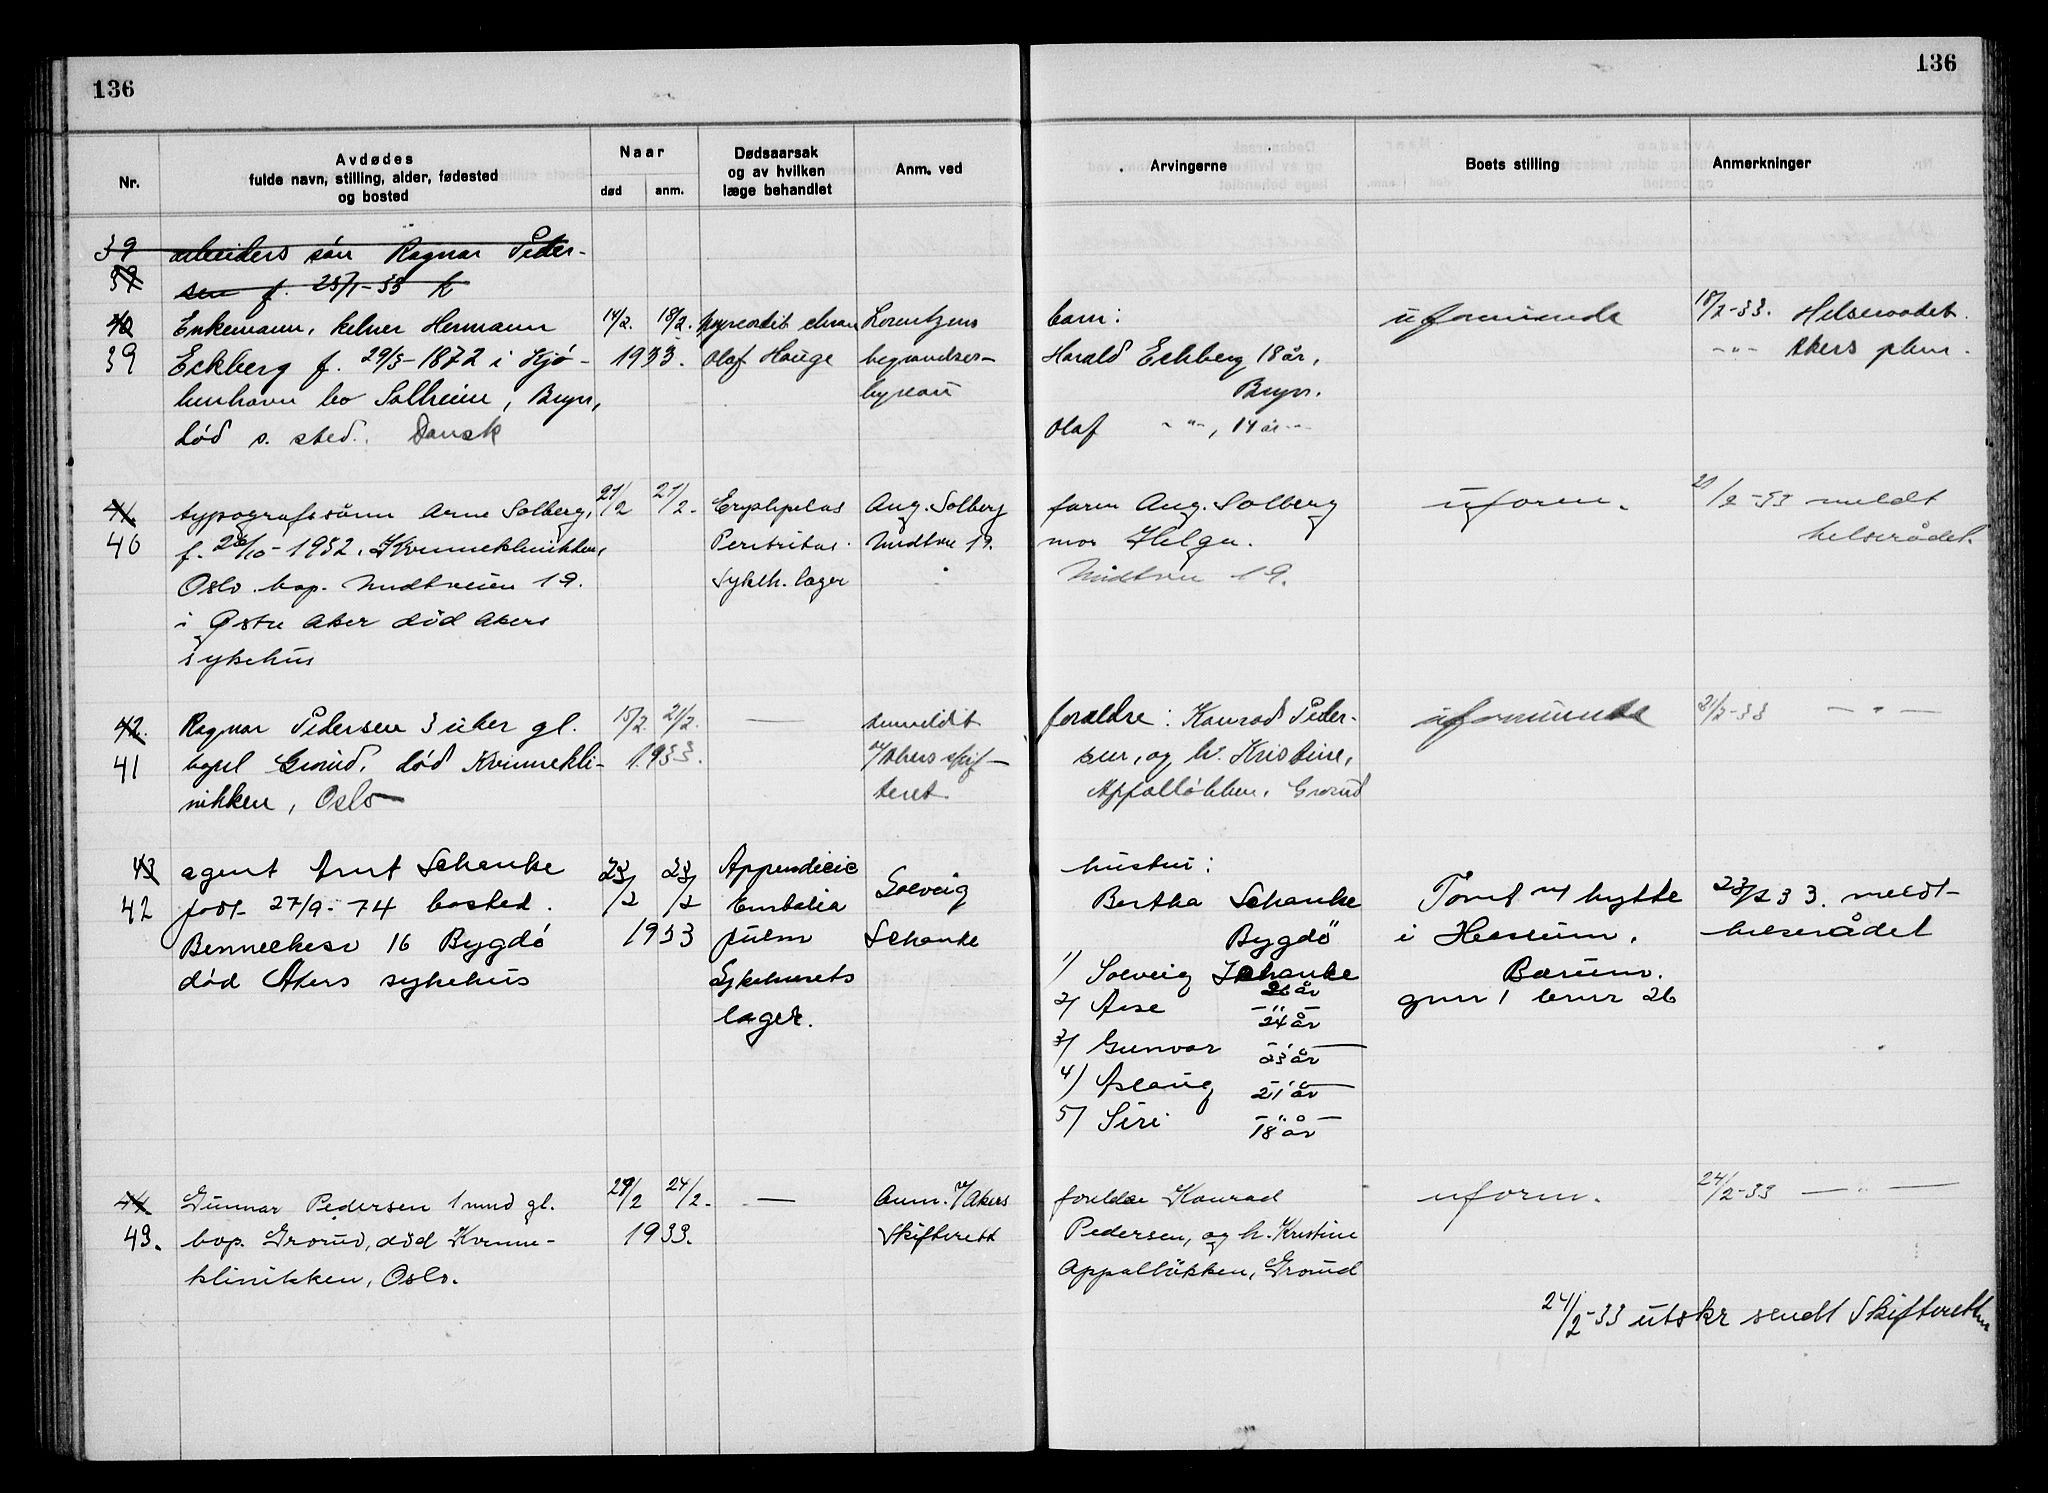 136
136
Nr.
Avdødes
fulde navn, stilling, alder, fødested
og bosted
Naar
død
anm.
Dødsaarsak
og av hvilken
læge behandlet
Anm. ved
Arvingerne
Boets stilling
Anmerkninger
39 arbeiders sön Ragnar Peder-
sen f. 25/1-33
40 Enkemann, kelner Hermann
39 Eckberg f. 29/3-1872 i Kjö-
benhavn bo Solheim, Bryn,
död s. sted. Dansk
14/2. 18/2.
1933.
Olaf Hauge
Lorentzens
begravelses-
byrau
barn:
Harald Eckberg 18 år,
Bryn.
Olaf -"-, 14 år -"-
uformuende
18/2-33. Helseraadet.
-"- Akers
41. typografs sönn Arne Solberg,
40 f. 26/10-1932. Kvinneklinikken,
Oslo. bop. Midtveien 19.
i Östre Aker död Akers
sykehus
21/2 21/2.
Erysipelas
Sykeh. læger
Aug. Solberg
Midtvn 19.
faren Aug. Solberg
mor Helga.
Midtvn 19.
uform.
21/2-33 meldt
helserådet.
42. Ragnar Pedersen 3 uker gl.
41 bopel Grorud, död Kvinnekli-
nikken, Oslo
15/2. 21/2.
1933.
—
anmeldt
v/Akers skif-
teret.
foreldre: Konrad Peder-
sen, og h. Kristine,
Appallökken, Grorud
uformuende
21/2-33 — " —
43 agent Arnt Schanke
42 födt 27/9-74 bosted.
Bennechesv 16 Bygdö
död Akers sykehus
23/2 23/2
1933
Appendicic
Embolia
pulm
Sykehusets
læger.
Solveig
Schanke
hustru:
Bertha Schanke
Bygdö
1) Solveig Schanke
26 år
2) Aase -"-
24 år
3) Gunvor -"-
23 år
4) Aslaug -"-
21 år
5) Siri -"-
18 år
Tomt m/ hytte
i Hessum,
Bærum.
gnr 1 brnr 26
23/2 33. meldt
helserådet
44 Gunnar Pedersen 1 mnd gl.
43. bop. Grorud, död Kvinne-
klinikken, Oslo.
24/2 24/2.
1933.
—
Anm. v/Akers
Skifterett
foreldre Konrad
Pedersen, og h. Kristine
Appallökken, Grorud
uform.
24/2-33 — " —
24/2-33 utskr sendt Skifteretten